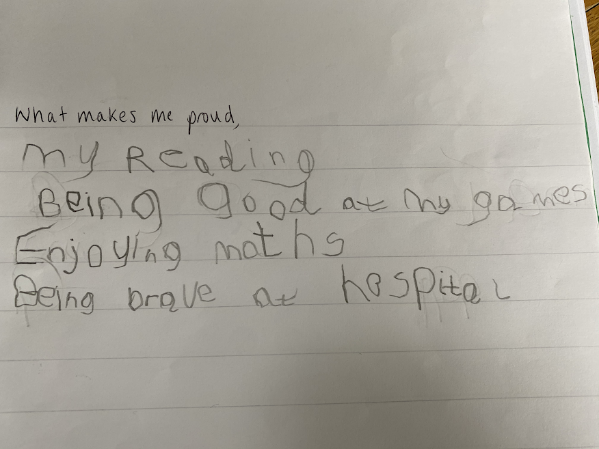 What makes me proud,
my Reading
Being good at my games
Enjoying maths
Being brave at hospital